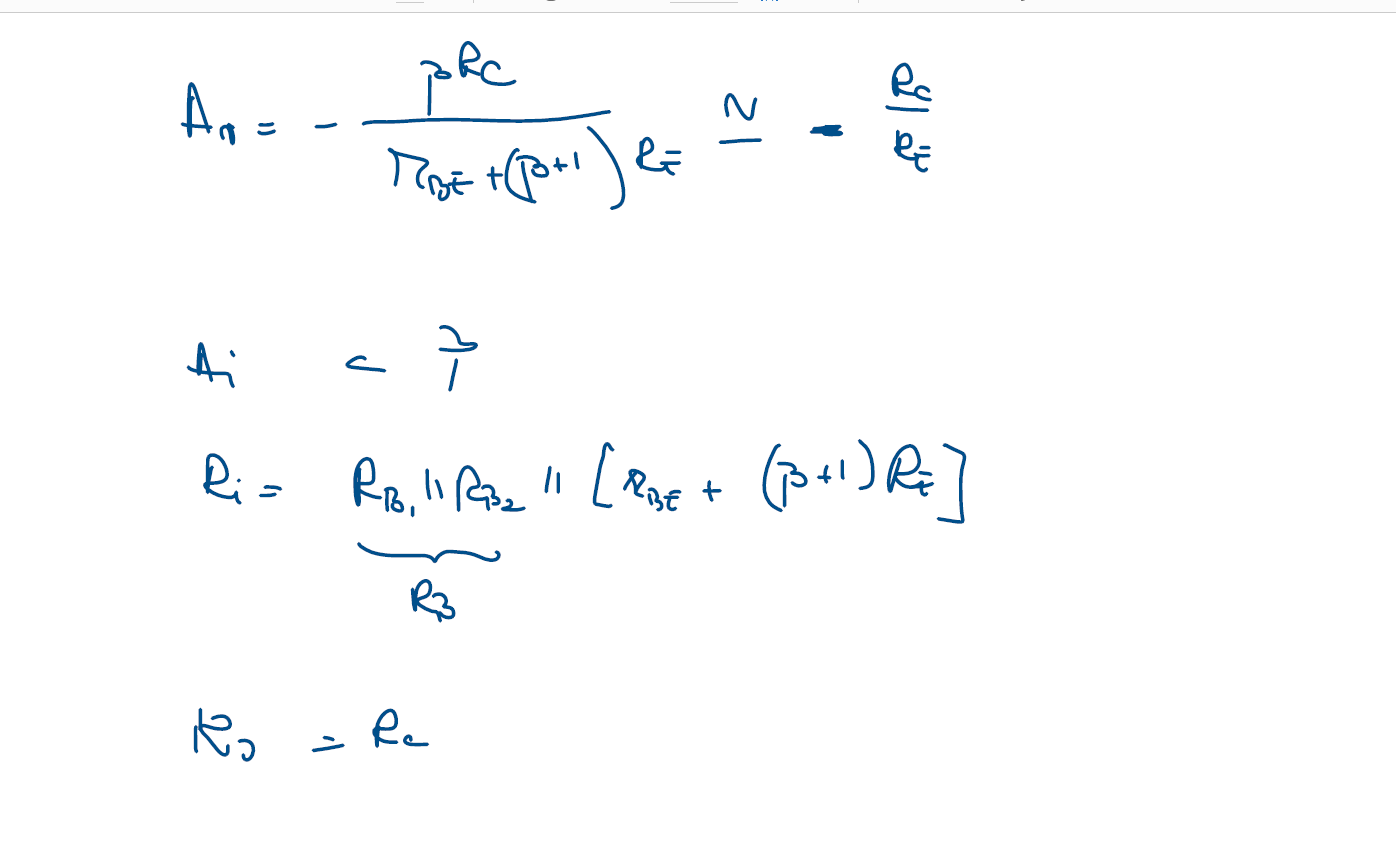 A_v = - βR_C / (r_BE + (β+1) R_E) ≃ - R_C / R_E
A_i
R_i = R_B1 || R_B2 || [r_BE + (β+1) R_E]
R_B
R_o = R_C